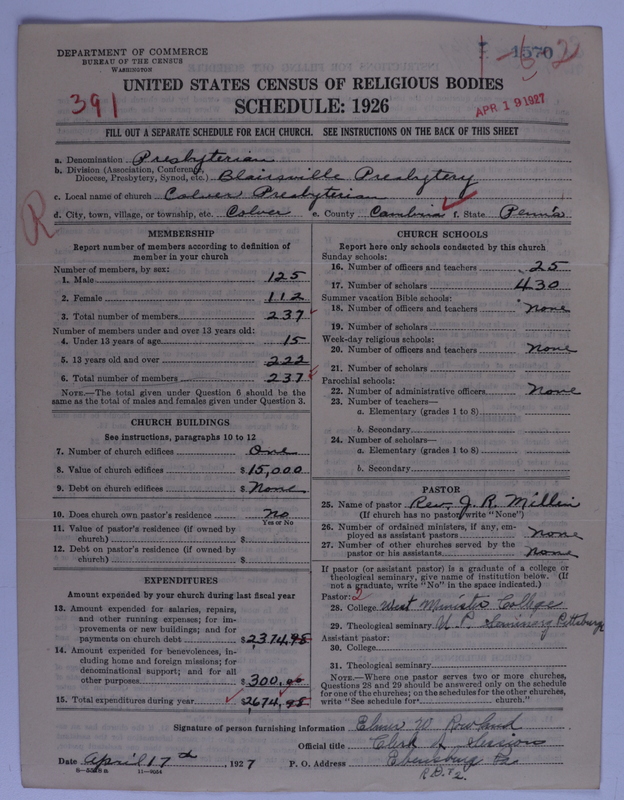 DEPARTMENT OF COMMERCE
BUREAU OF THE CENSUS
WASHINGTON
1570
391
UNITED STATES CENSUS OF RELIGIOUS BODIES
SCHEDULE: 1926
APR 19 1927
FILL OUT A SEPARATE SCHEDULE FOR EACH CHURCH. SEE INSTRUCTIONS ON THE BACK OF THIS SHEET
a. Denomination Presbyterian
b. Division (Association, Conference, Diocese, Presbytery, Synod, etc.) Blairsville Presbytery
c. Local name of church Colver Presbyterian
d. City, town, village, or township, etc. Colver e. County Cambria f. State Penn'a
R
MEMBERSHIP
Report number of members according to definition of
member in your church
Number of members, by sex:
1. Male 125
2. Female 112
3. Total number of members 237
Number of members under and over 13 years old:
4. Under 13 years of age 15
5. 13 years old and over 222
6. Total number of members 237
NOTE.—The total given under Question 6 should be the
same as the total of males and females given under Question 3.
CHURCH BUILDINGS
See instructions, paragraphs 10 to 12
7. Number of church edifices One
8. Value of church edifices $15,000
9. Debt on church edifices $None
10. Does church own pastor's residence no
Yes or No
11. Value of pastor's residence (if owned by
church) $
12. Debt on pastor's residence (if owned by
church) $
EXPENDITURES
Amount expended by your church during last fiscal year
13. Amount expended for salaries, repairs,
and other running expenses; for im-
provements or new buildings; and for
payments on church debt $2374,98
14. Amount expended for benevolences, in-
cluding home and foreign missions; for
denominational support; and for all
other purposes $300,00
15. Total expenditures during year $2674,98
CHURCH SCHOOLS
Report here only schools conducted by this church
Sunday schools:
16. Number of officers and teachers 25
17. Number of scholars 430
Summer vacation Bible schools:
18. Number of officers and teachers none
19. Number of scholars
Week-day religious schools:
20. Number of officers and teachers none
21. Number of scholars
Parochial schools:
22. Number of administrative officers none
23. Number of teachers—
a. Elementary (grades 1 to 8)
b. Secondary
24. Number of scholars—
a. Elementary (grades 1 to 8)
b. Secondary
PASTOR
25. Name of pastor Rev. J. R. Millin
(If church has no pastor, write "None")
26. Number of ordained ministers, if any, em-
ployed as assistant pastors none
27. Number of other churches served by the
pastor or his assistants none
If pastor (or assistant pastor) is a graduate of a college or
theological seminary, give name of institution below. (If
not a graduate, write "No" in the space indicated.)
Pastor: 2
28. College West Minister College
29. Theological seminary U. P. Seminary Pittsburge
Assistant pastor:
30. College
31. Theological seminary
NOTE.—Where one pastor serves two or more churches,
Questions 28 and 29 should be answered only on the schedule
for one of the churches; on the schedules for the other churches,
write "See schedule for church."
Signature of person furnishing information Elmer W. Rowland
Official title Clerk of Session
Date April 17 d, 1927 P. O. Address Ebensburg Pa.
R.D. #2.
8-5518a 11-9054